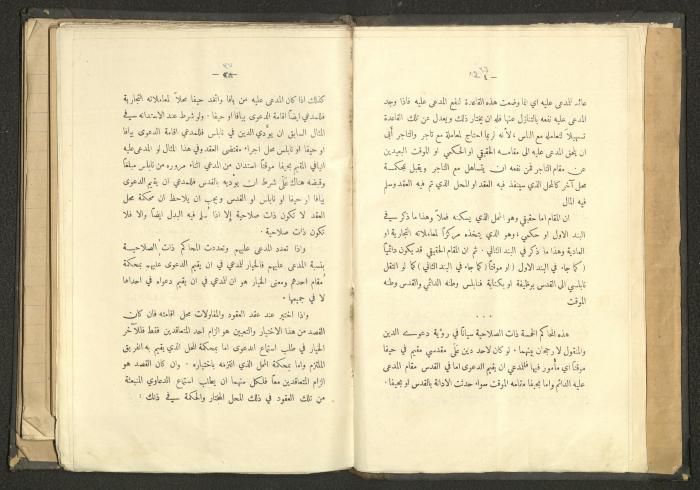 عائد للمدعى عليه اي انما وضعت هذه القاعدة لنفع المدعى عليه فاذا وجد
المدعى عليه نفعه بالتنازل عنها فله ان يختار ذلك ويعدل عن تلك القاعدة
تسهيلاً لتعامله مع الناس؛ لأنه لربما احتاج لمعاملة مع تاجر والتاجر أبى
ان يلحق المدعى عليه الى مقامه الحقيقي او الحكمي لو الموقت البعيدين
عن مقام التاجر فمن نفعه ان يتساهل مع التاجر ويقبل لمحكمة
محل آخر كالمحل الذي سينفذ فيه العقد او المحل الذي تم فيه العقد وسلم
فيه المال
ان المقام اما حقيقي وهو المحل الذي يسكنه فعلاً وهذا ما ذكر في
البند الاول او حكمي؛ وهو الذي يتخذه مركزاً لمعاملاته التجارية او
العادية وهذا ما ذكر في البند الثاني. ثم ان المقام الحقيقي قد يكون دائمياً
(كما جاء في البند الاول) او موقتاً (كما جاء في البند الثاني) كما لو انتقل
نابلسي الى القدس بوظيفة او بكتابة فنابلس وطنه الدائمي والقدس وطنه
الموقت
هذه المحاكم الخمسة ذات الصلاحية سيان في رؤية دعوى الدين
والمنقول لا رجحان بينهما. لو كان لاحد دين على مقدسي مقيم في حيفا
موقتاً اي مأمور فيها فللمدعي ان يقيم الدعوى اما في القدس مقام المدعى
عليه الدائم واما بحيفا مقامه الموقت سواء حدثت الادانة بالقدس او بحيفا.
كذلك اذا كان المدعى عليه من يافا واتخذ حيفا محلاً لمعاملاته التجارية
فللمدعي ايضاً اقامة الدعوى بيافا او حيفا. ولو شرط عند الاستدانة في
المثال السابق ان يؤدي الدين في نابلس فللمدعي اقامة الدعوى بيافا
او حيفا او نابلس محل اجراء مقتضى العقد وفي هذا المثال لو المدعى عليه
اليافي المقيم بحيفا موقتاً استدان من المدعي اثناء مروره من نابلس مبلغاً
وقبضه هناك على شرط ان يؤديه بالقدس فللمدعي ان يقيم الدعوى
بيافا او حيفا او نابلس او القدس ويجب ان يلاحظ ان محكمة محل
العقد لا تكون ذات صلاحية إلا اذا سلم فيه البدل ايضاً والا فلا
تكون ذات صلاحية.
واذا تعدد المدعى عليهم وتعددت المحاكم ذات الصلاحية
بنسبة المدعى عليهم فالخيار للمدعي في ان يقيم الدعوى عليهم بمحكمة
مقام احدهم ومعنى الخيار هو ان للمدعي في ان يقيم دعواه في احداها
لا في جميعها.
واذا اختير عند عقد العقود والمقاولات محل اقامته فان كان
القصد من هذا الاختيار والتعيين هو الزام احد المتعاقدين فقط فللآخر
الخيار في طلب استماع الدعوى اما بمحكمة المحل الذي يقيم به الفريق
الملتزم واما بمحكمة المحل الذي التزمه باختياره. وان كان القصد هو
الزام المتعاقدين معاً فلكل منهما ان يطلب استماع الدعاوي المنبعثة
من تلك العقود في ذلك للمحل المختار والحكمة في ذلك: